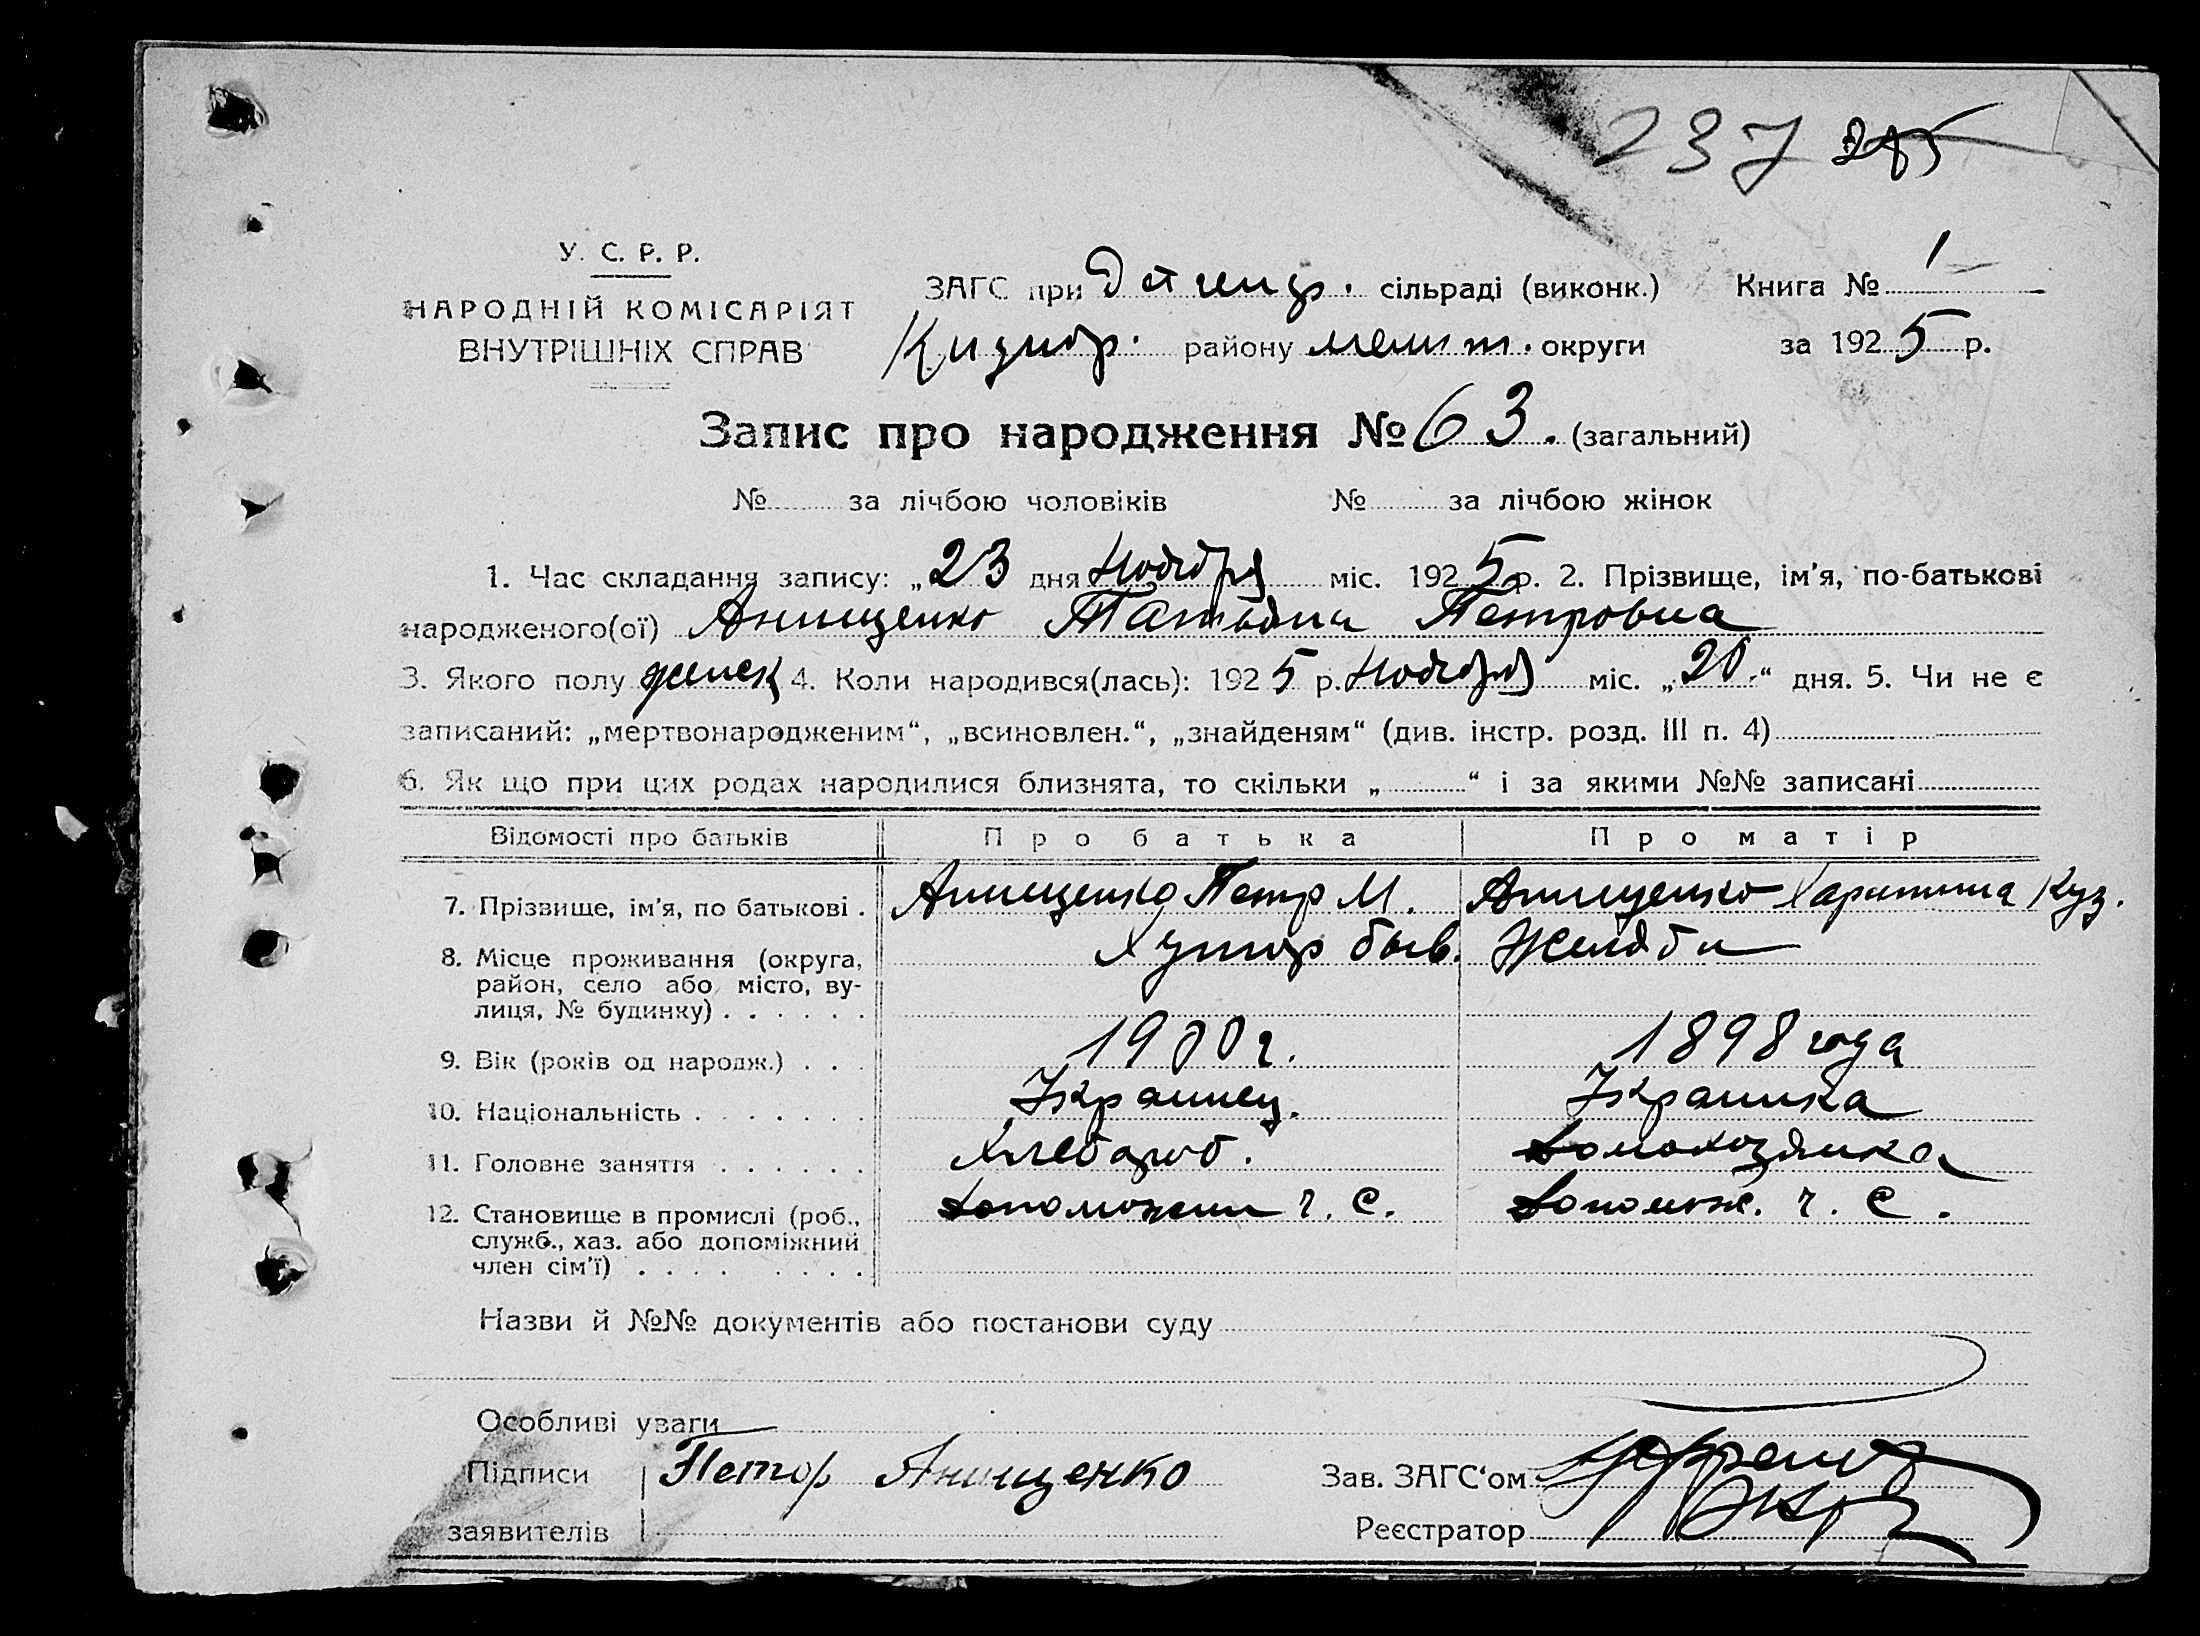 237
У. С. Р. Р.
НАРОДНІЙ КОМІСАРІЯТ
ВНУТРІШНІХ СПРАВ
ЗАГС при сільраді (виконк.) Книга № 1
району мелит. округи за 1925 р.
Запис про народження № 63. (загальний)
№ за лічбою чоловіків № за лічбою жінок
1. Час складання запису: „23 дня Ноября міс. 1925 р. 2. Прізвище, ім’я, по-батькові
народженого(ої) Анищенко Татьяна Петровна
3. Якого полу женск 4. Коли народився(лась): 1925 р. Ноября міс. „20.“ дня. 5. Чи не є
записаний: „мертвонародженим“, „всиновлен.“, „знайденям“ (див. інстр. розд. III п. 4)
6. Як що при цих родах народилися близнята, то скільки „ “ і за якими №№ записані
Відомості про батьків Про батька Про матір
7. Прізвище, ім’я, по батькові . Анищенко Петр М. Анищенко Харитина Куз.
8. Місце проживання (округа, Хутор быв.
район, село або місто, ву-
лиця, № будинку) . . . . . .
9. Вік (років од народж.) . . . 1900 г. 1898 года
10. Національність . . . . . . . Украинец. Украинка
11. Головне заняття . . . . . . Хлебороб. Домохозяйка
12. Становище в промислі (роб., Допоможни ч. С. Допомож. ч. С.
служб., хаз. або допоміжний
член сім’ї) . . . . . . . .
Назви й №№ документів або постанови суду
Особливі уваги
Підписи Петор Анищенко Зав. ЗАГС‘ом
заявителів Реєстратор